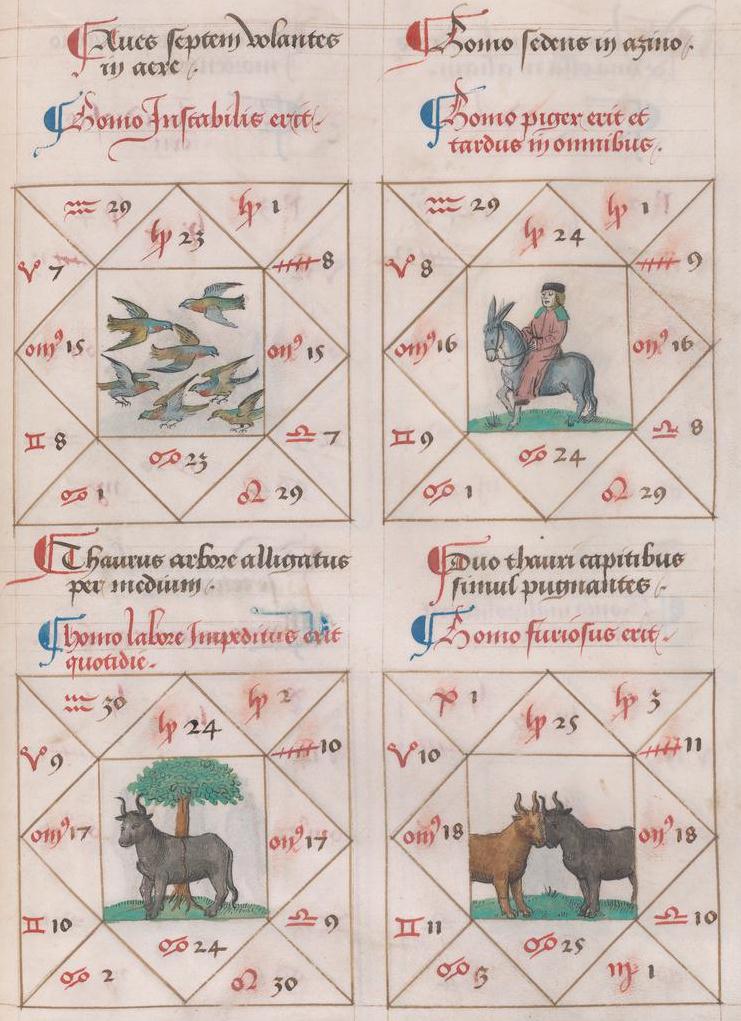 Aues septem volantes
in aere
Homo Instabilis erit
♒ 29
♑ 1
♑ 23
♈ 7
♐ 8
15
15
♊ 8
♎ 7
♋ 23
♋ 1
♌ 29
Homo sedens in azino
Homo piger erit et
tardus in omnibus
♒ 29
♑ 1
♑ 24
♈ 8
♐ 9
16
16
♊ 9
♎ 8
♋ 24
♋ 1
♌ 29
Thaurus arbore alligatus
per medium
homo labore Impeditus erit
quotidie
♒ 30
♑ 2
♑ 24
♈ 9
♐ 10
17
17
♊ 10
♎ 9
♋ 24
♋ 2
♌ 30
Duo thauri capitibus
simul pugnantes
Homo furiosus erit
♓ 1
♑ 3
♑ 25
♈ 10
♐ 11
18
18
♊ 11
♎ 10
♋ 25
♋ 3
♍ 1